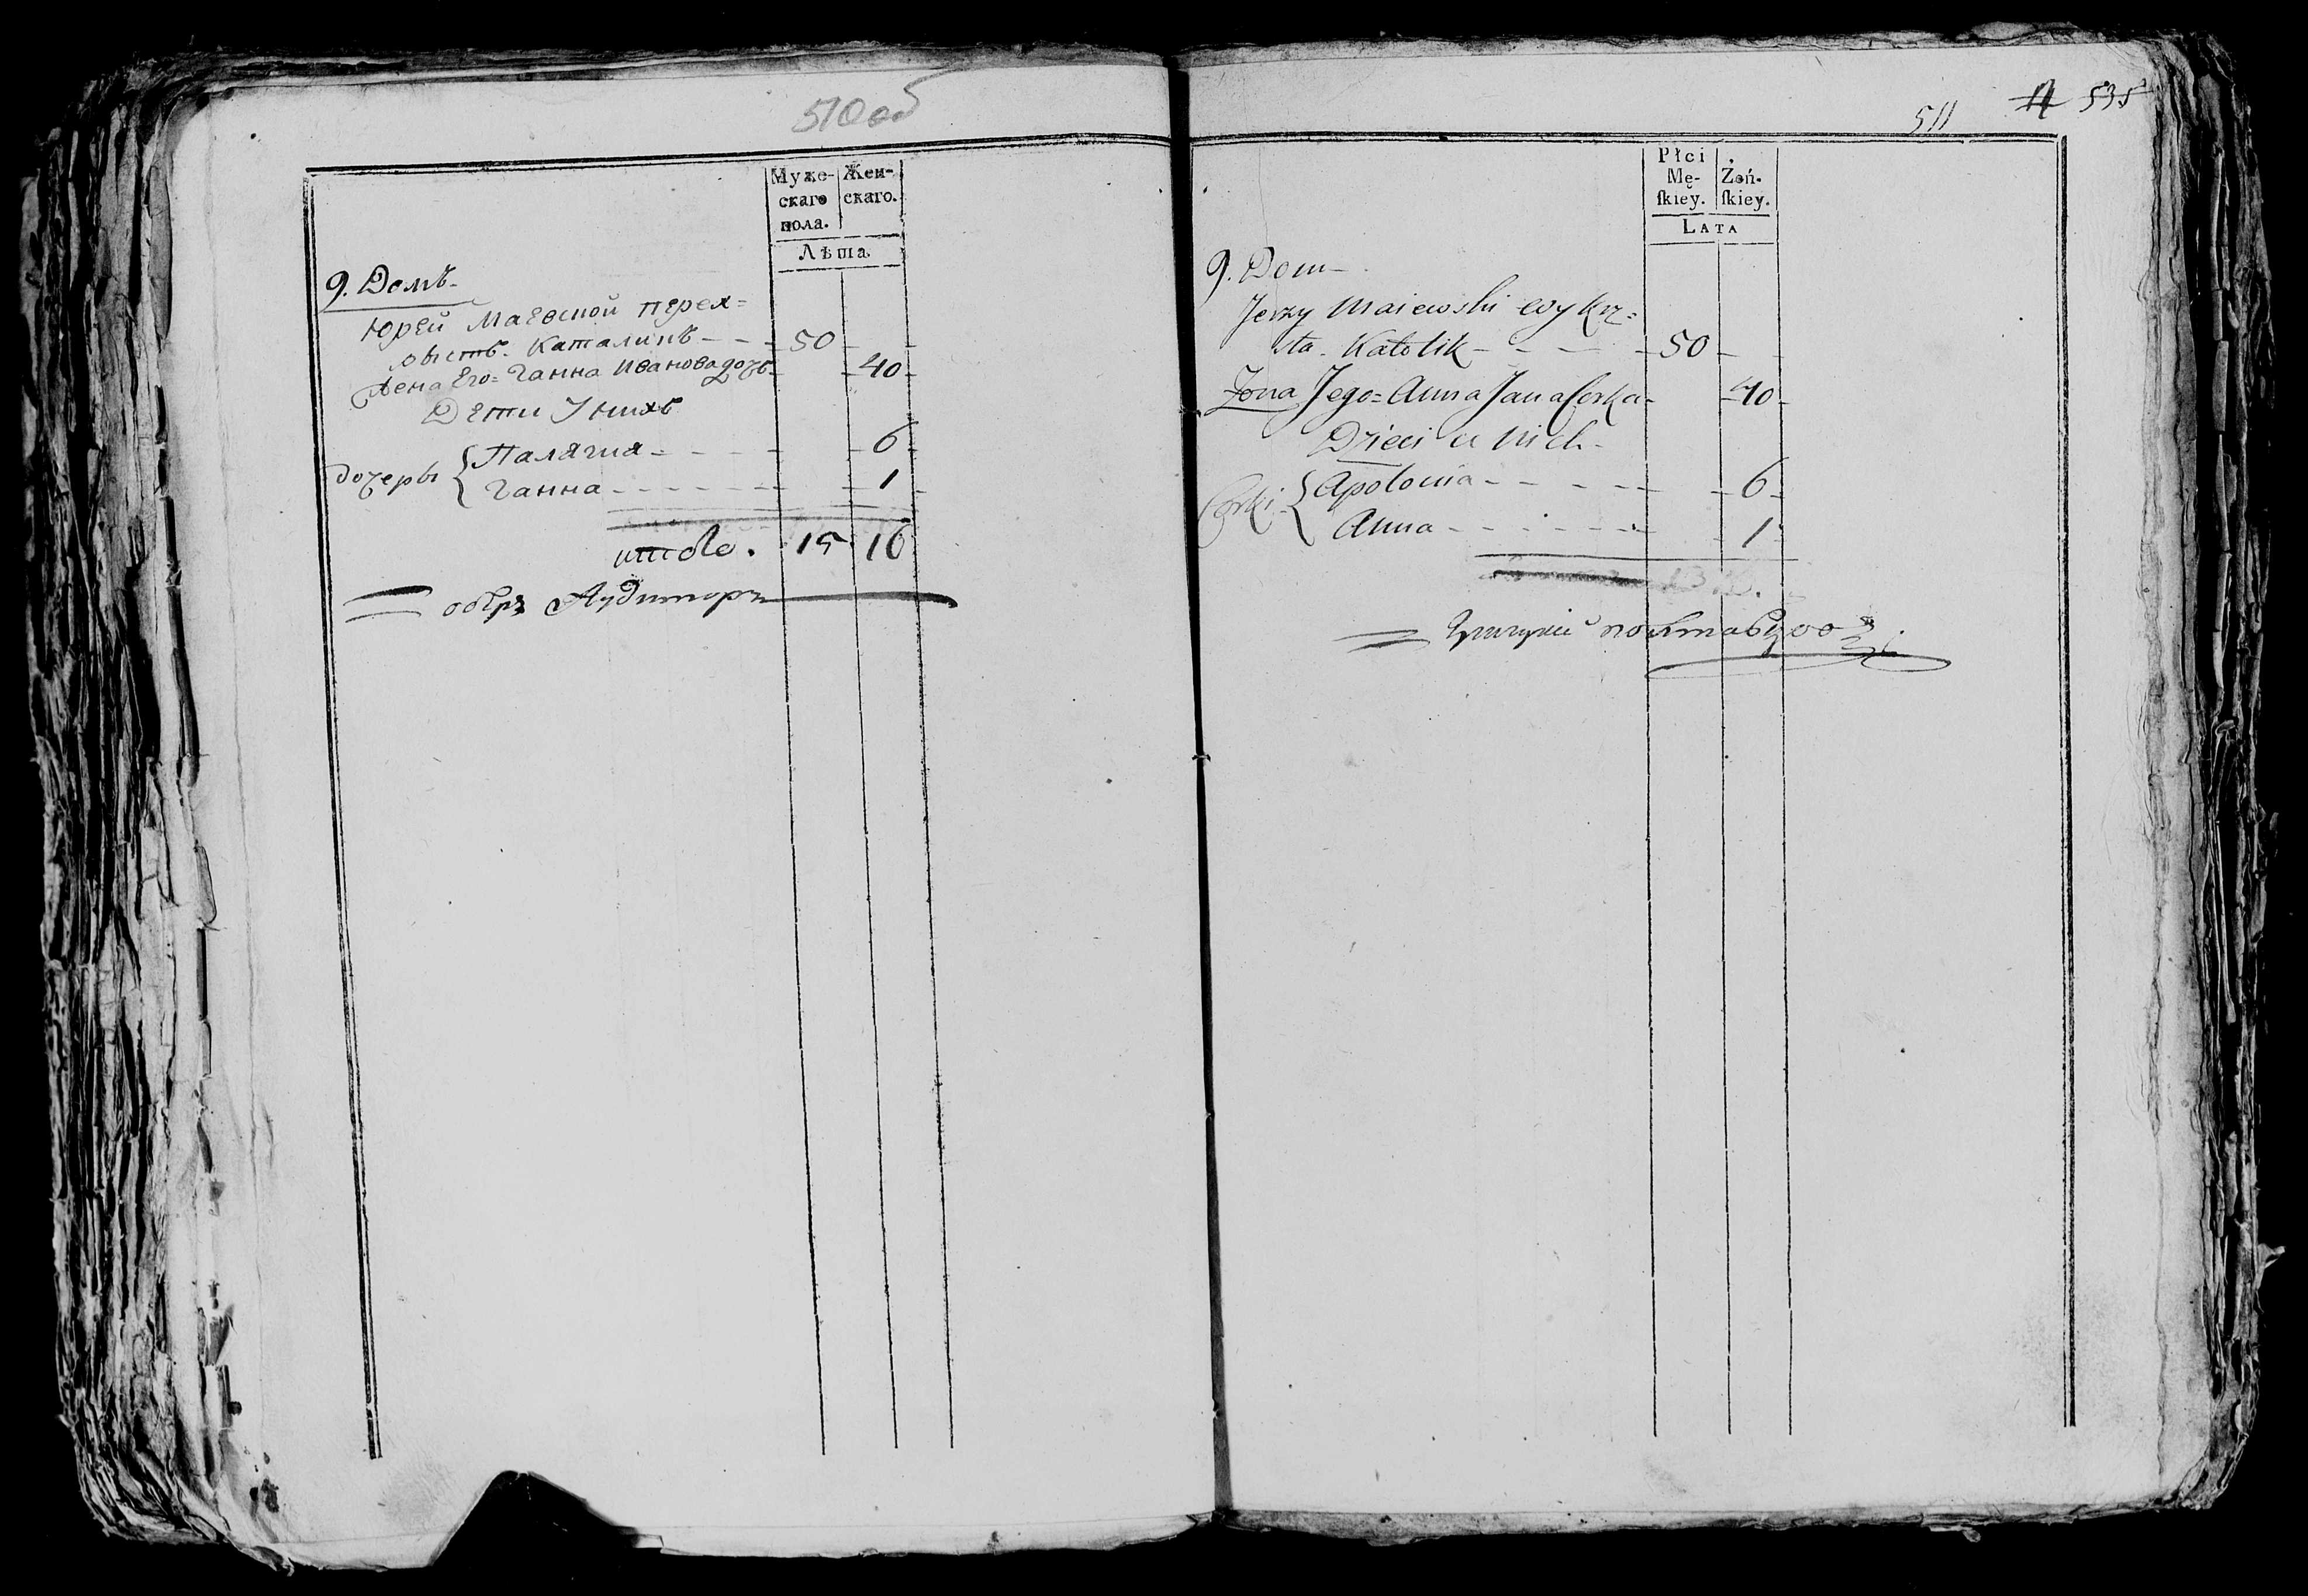 510 об
Муже-
скаго
пола.
Жен-
скаго.
Лѣта
9. Домъ.
Юрей Маевской перех=
рыстъ. Католикъ - - - 50
Жена Его = Ганна Иванова дочь - 40
Дети У нихъ
дочеры
Палагия - - - - 6
Ганна - - - - - 1
итого. 15 16
оберъ Аудиторъ
511 535
Płci
Mę-
ſkiey.
Żeń-
ſkiey.
LATA
9. Dom -
Jerzy Maiewski wykrz=
sta. Katolik - - - - 50
Zona Jego = Anna Jana Corka - 40
Dzieci u nich -
Corki
Apolonia - - - - - 6
Anna - - - - - - 1